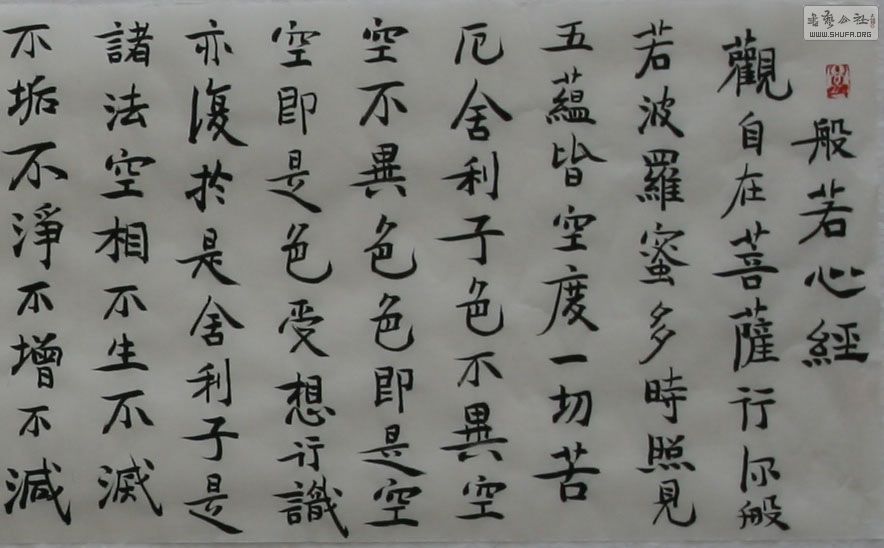 般若心經
觀自在菩薩行深般
若波羅蜜多時照見
五蘊皆空度一切苦
厄舍利子色不異空
空不異色色即是空
空即是色受想行識
亦復於是舍利子是
諸法空相不生不滅
不垢不淨不增不減
書藝公社
WWW.SHUFA.ORG